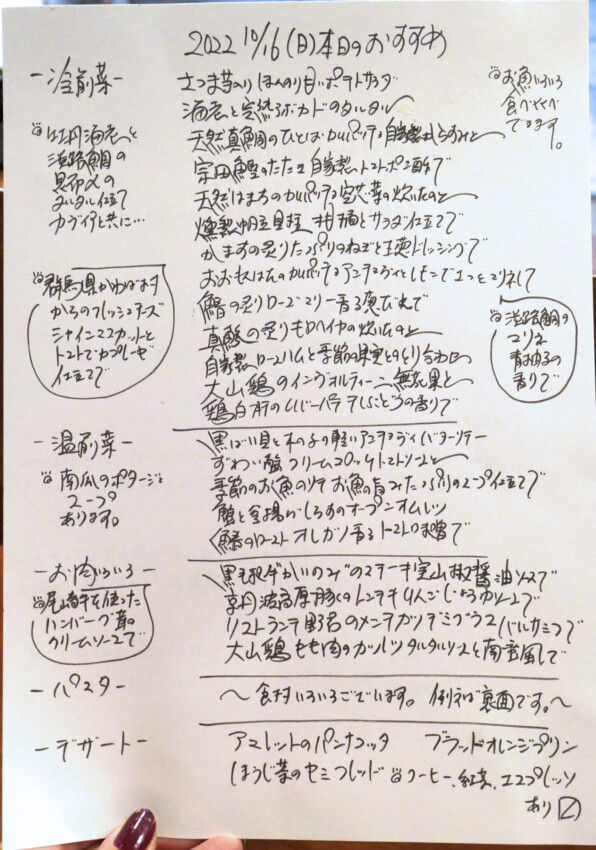 2022 10/16(日)本日のおすすめ
－冷前菜－
さつま芋入りほんのり甘いポテトサラダ
海老と完熟アボカドのタルタル
天然真鯛のひとはカルパッチョ自家製からすみと
宗田鰹のたたき自家製トマトポン酢で
天然はまちのカルパッチョ空芯菜の炊いたのと
燻製帆立貝柱 柑橘とサラダ仕立てで
かますの炙りたっぷりのねぎと生姜ドレッシングで
鰆の炙りローズマリー香る
真鯵の炙りモロヘイヤの炊いたのと
自家製ロースハムと季節の果実とのとり合わせ
大山鶏のインヴォルティーニ無花果と
鶏白肝のムース
お魚いろいろ
食べくらべ
できます。
牡丹海老と
淡路鯛の
昆布〆の
タルタル仕立て
カヴィアと共に…
群馬県かわばあります
からのフレッシュチーズ
シャインマスカットと
トマトでカプレーゼ
仕立てで
淡路鯛の
マリネ
青ゆずの
香りで
－温前菜－
南瓜のポタージュ
スープ
あります。
黒ばい貝と木の子の軽いアンチョヴィバターソテー
ずわい蟹クリームコロッケトマトソースと
季節のお魚のソテーお魚の旨みたっぷりのスープ仕立てで
蟹と釜揚げしらすのオープンオムレツ
鰆のローストオレガノ香るトマトソースで
－お肉いろいろ－
尾崎牛を使った
ハンバーグ茸の
クリームソースで
黒毛和牛かいのみのステーキ実山椒醤油ソースで
京丹波高原豚のトンテキりんごしょうがソースで
リストランテ野呂のメンチカツデミグラスバルサミコで
大山鶏もも肉のカツレツタルタルソースと南蛮風で
－パスタ－
～食材いろいろございます。例えば裏面です。～
－デザート－
アマレットのパンナコッタ ブラッドオレンジプリン
ほうじ茶のセミフレッド コーヒー、紅茶、エスプレッソ
あり